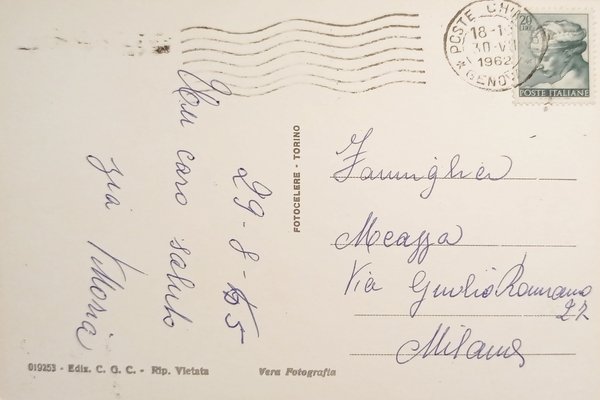 Un caro saluto
29-8-65
zia Vittoria
FOTOCELERE - TORINO
POSTE CHIAVARI
18-19
30-VIII
1962
* GENOVA *
POSTE ITALIANE
Famiglia
Meazza
Via Giulio Romano
27
Milano
019253 - Ediz. C. G. C. - Rip. Vietata
Vera Fotografia